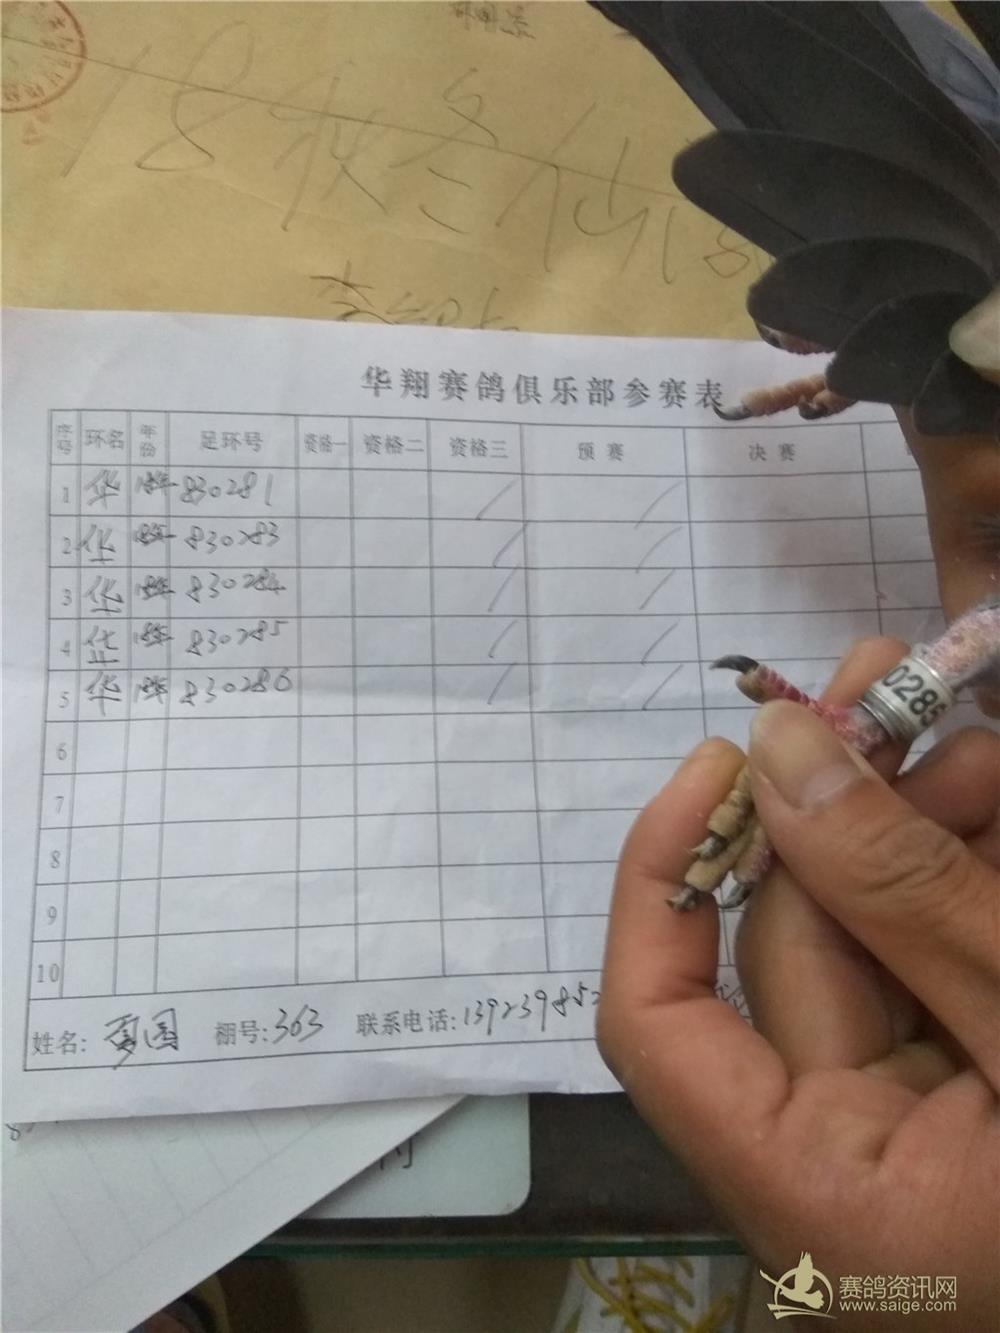 18秋冬
华翔赛鸽俱乐部参赛表
序号 环名 年份 足环号 资格一 资格二 资格三 预赛 决赛
1 华 18年 830281
2 华 18年 830283
3 华 18年 830284
4 华 18年 830285
5 华 18年 830286
6
7
8
9
10
姓名: 国 棚号:363 联系电话:139239852
0285
赛鸽资讯网
www.saige.com